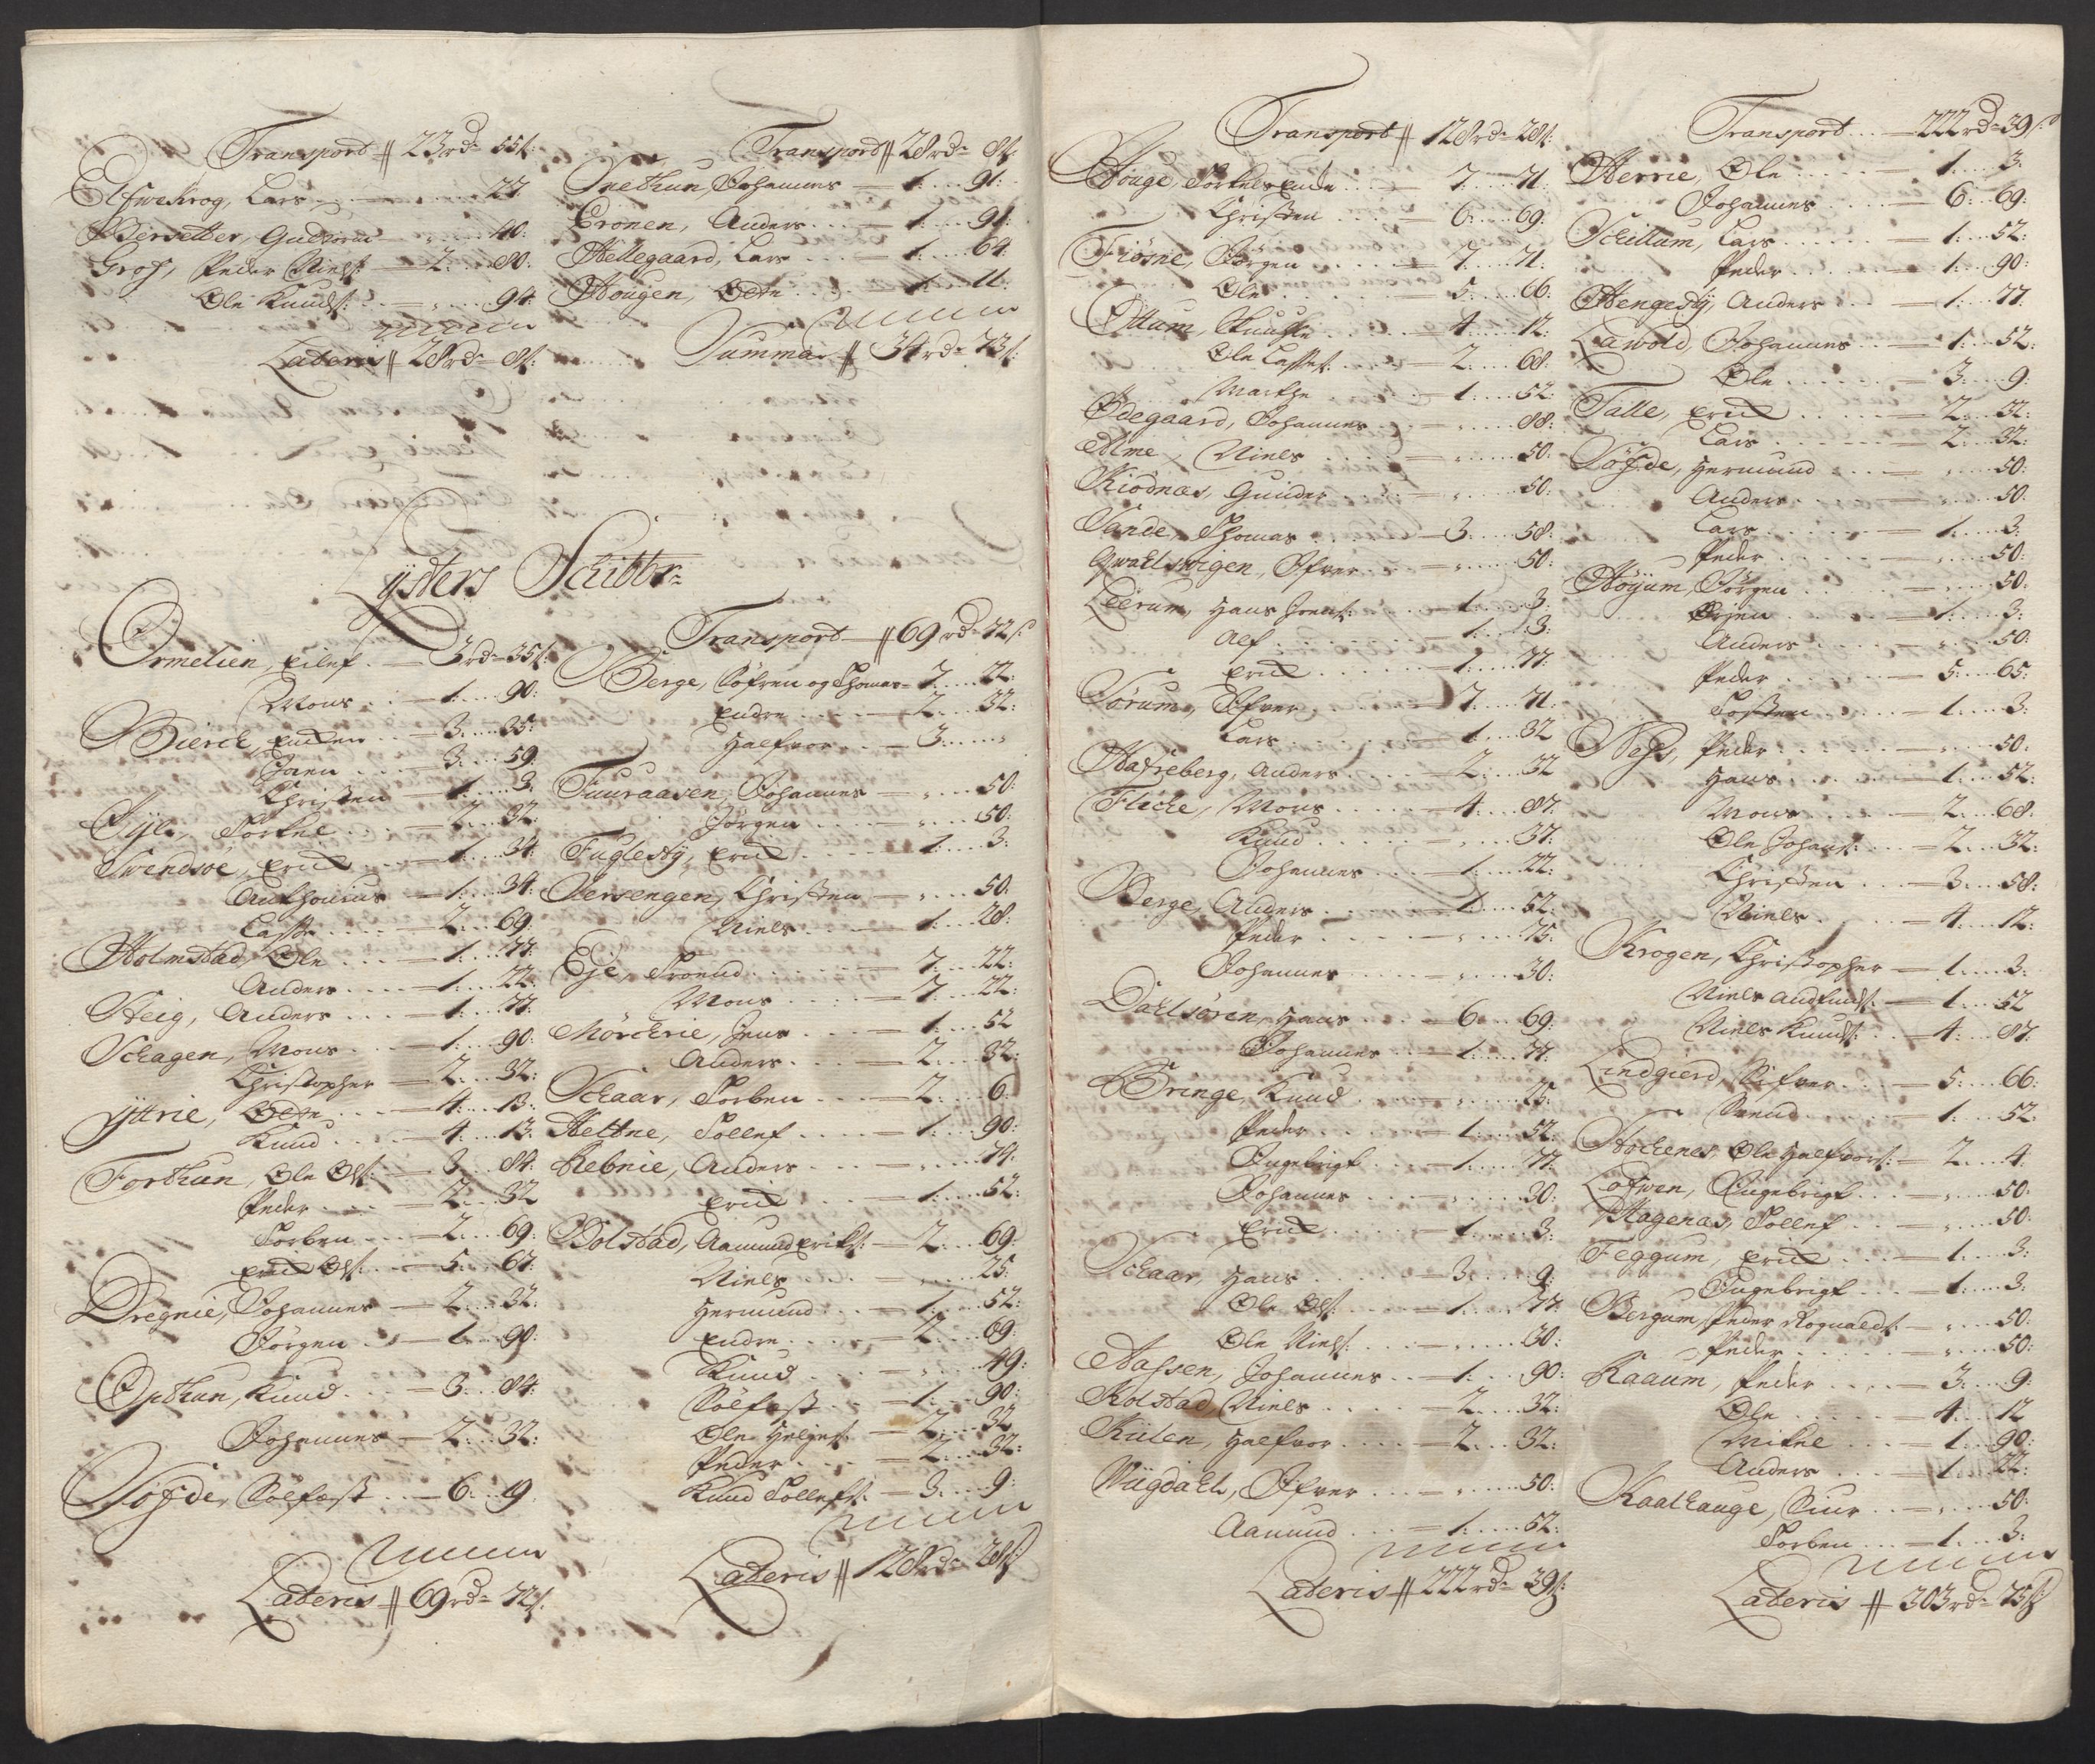 Transport // 23 rd- 55 s:
Elfwekrog, Lars - " . . 27
Bersetter, Gudorm - " . . 40:
Grof, Peder Niels: - 2 . . 80:
Ole Knuds: - " . . 94:
Lateris // 28 rd- 8 s:
Transport // 28 rd- 8 s:
Svethun, Johannes - 1 . . 91:
Cronen, Anders - 1 . . 91:
Hellegaard, Lars - 1 . . 64:
Hougen, Odn - 1 . . 11:
Summa // 34 rd- 73 s:
Lysters Schibbr-
Ormelien, Eilef - 3 rd- 35 s:
Mons - 1 . . 90:
Bierch, Enden - 3 . . 35:
Joen - 3 . . 59
Christen - 1 . . 3
Syle, Torkel - 2 . . 32:
Svendsøe, Erich - 1 . . 34:
Anthonius - 1 . . 34:
Lasse - 2 . . 69:
Holmstad, Ole - 1 . . 77:
Anders - 1 . . 22:
Steig, Anders - 1 . . 77:
Schagen, Mons - 1 . . 90:
Christopher - 2 . . 32:
Yttrie, Odn - 4 . . 13:
Knud - 4 . . 13:
Forthun, Ole Ols: - 3 . . 84:
Peder - 2 . . 32
Torben - 2 . . 69:
Erich Ols: - 5 . . 67:
Dregnie, Johannes - 2 . . 32:
Jørgen - 1 . . 90:
Opthun, Knud - 3 . . 84:
Johannes - 2 . . 32:
Søfde, Sølfæst - 6 . . 19
Lateris // 69 rd- 72 s:
Transport // 69 rd- 72 s:
Berge, Søfren og Thomas - 7 . . 22:
Endre - 2 . . 32:
Halfvor - 3 . . "
Fuuraasen, Johannes - " . . 50:
Jørgen - " . . 50:
Fuglesty, Erich - 1 . . 3:
Versengen, Christen - " . . 50:
Niels - 1 . . 28:
Eje, Troend - 7 . . 22:
Mons - 7 . . 22:
Mørchrie, Jens - 1 . . 52
Anders - 2 . . 32:
Schaar, Torben - 2 . . 6:
Heltne, Tollef - 1 . . 90:
Rebnie, Anders - " . . 74:
Erich - 1 . . 52:
Bolstad, Aamund Eriks: - 2 . . 69:
Niels - " . . 25:
Hermund - 1 . . 52:
Endre - 2 . . 69:
Knud - " . . 49:
Sølfæst - 1 . . 90:
Ole Helges: - 2 . . 32
Peder - 2 . . 32:
Knud Tollefs: - 3 . . 9:
Lateris // 128 rd- 28 s
Transport // 128 rd- 28 s:
Houge, Torkelsende - 7 . . 71:
Christen - 6 . . 69:
Fiøsne, Jørgen - 7 . . 71:
Ole - 5 . . 66:
Ottum, - 4 . . 12:
Ole Lasses: - 2 . . 68:
Marthe - 1 . . 52:
Ødegaard, Johannes - " . . 88:
Alme, Niels - " . . 50:
Kiodnæs, Gunder - " . . 50:
Sande, Thomas - 3 . . 58:
Qvahlswigen, Ifver - " . . 50:
Leerum, Hans Joens: - 1 . . 3:
Alf - 1 . . 3:
Erich - 1 . . 77:
Sørum, Ifver - 7 . . 71:
Lars - 1 . . 32
Hafreberg, Anders - 2 . . 32
Fliche, Mons - 4 . . 87:
Knud - " . . 37:
Johannes - 1 . . 22:
Berge, Anders - 1 . . 52:
Peder - " . . 75:
Johannes - " . . 30:
Dahlsøren, Hans - 6 . . 69:
Johannes - 1 . . 77:
Bringe, Knud - " . . 25:
Peder - 1 . . 52:
Ingebrigt - 1 . . 77:
Johannes - " . . 30:
Erich - 1 . . 3:
Schaar, Hans - 3 . . 9:
Ole Ols: - 1 . . 77:
Ole Niels: - " . . 30:
Aassen, Johannes - 1 . . 90:
Kolstad, Niels - 2 . . 32:
Kiilen, Halfvor - 2 . . 32:
Mugdahl, Ifver - " . . 50:
Aamund - 1 . . 52:
Lateris // 222 rd- 39 s:
Transport - 222 rd- 39 s:
Herrie, Ole - 1 . . 3:
Johannes - 6 . . 69:
Schillum, Lars - 1 . . 52:
Peder - 1 . . 90:
Hengesty, Anders - 1 . . 77:
Lawold, Johannes - 1 . . 52:
Ole - 3 . . 9:
Talle, Erich - 2 . . 32:
Lars - 2 . . 32:
Søfde, Hermund - " . . 50:
Anders - " . . 50:
Lars - 1 . . 3:
Peder - " . . 50:
Høyum, Jørgen - " . . 50:
Ørjen - 1 . . 3:
Anders - " . . 50:
Peder - 5 . . 65:
Tosten - 1 . . 3:
Ness, Peder - " . . 50:
Hans - 1 . . 52:
Mons - 2 . . 68:
Ole Johans: - 2 . . 32:
Christen - 3 . . 58:
Niels - 4 . . 12:
Krogen, Christopher - 1 . . 3:
Niels Audfinds: - 1 . . 52
Niels Knuds: - 4 . . 87:
Lindgierd, Sifver - 5 . . 66:
Svend - 1 . . 52:
Hochenes, Ole Halfvors: - 2 . . 4:
Lofwen, Ingebrigt - " . . 50:
Hagenas, Tollef - " . . 50:
Feggum, Erich - 1 . . 3:
Ingebrigt - 1 . . 3:
Bergum, Peder Rognalds: - " . . 50:
Peder - " . . 50:
Raaum, Peder - 3 . . 9:
Ole - 4 . . 12
Mikel - 1 . . 90:
Anders - 1 . . 22:
Kaalhauge, Siur - " . . 50:
Torben - 1 . . 3:
Lateris // 303 rd- 75 s